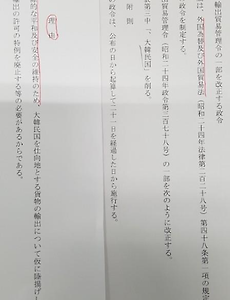 輸出貿易管理令の一部を改正する政令
は、外国為替及び外国貿易法（昭和二十四年法律第二百二十八号）第四十八条第一項の規定
政令を制定する。
出貿易管理令（昭和二十四年政令第三百七十八号）の一部を次のように改正する。
表第三中「、大韓民国」を削る。
附 則
の政令は、公布の日から起算して二十一日を経過した日から施行する。
理 由
的な平和及び安全の維持のため、大韓民国を仕向地とする貨物の輸出について仮に陸揚げし
輸出の許可の特例を廃止する等の必要があるからである。